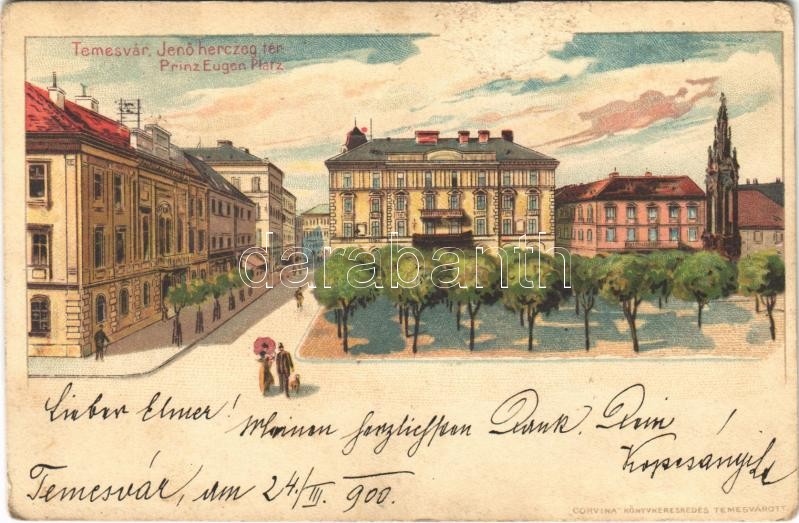 Temesvár, Jenő herczeg tér.
Prinz Eugen Platz
darabanth
Lieber Elmer! Meinen herzlichsten Dank. Dein
Temesvár, am 24/III. 900.
"CORVINA" KÖNYVKERESKEDÉS TEMESVÁROTT